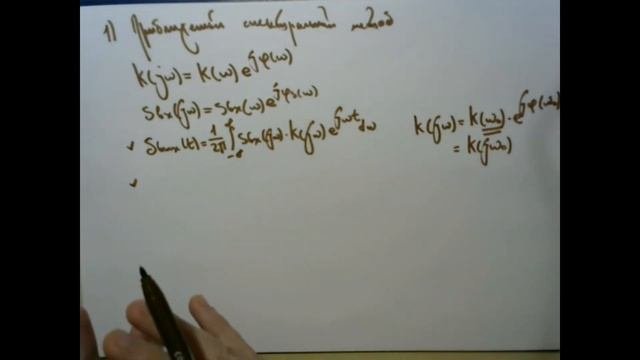 1) Приближенный спектральный метод
K(jω) = K(ω) e^{jφ(ω)}
Sвх(jω) = Sвх(ω) e^{jφx(ω)}
Sвых(t) = 1/2π ∫_{-∞}^{∞} Sвх(jω) · K(jω) e^{jωt} dω
K(jω) = K(ω₀) · e^{jφ(ω₀)}
= K(jω₀)